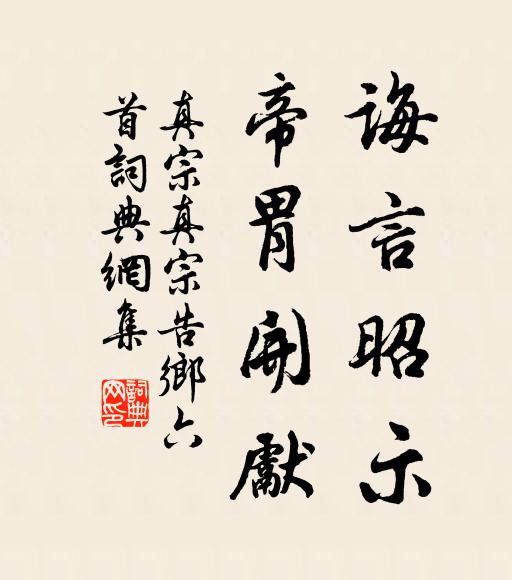 誨言昭示
帝胃開獻
真宗真宗告鄉六
首詞典網集
詞典
网印